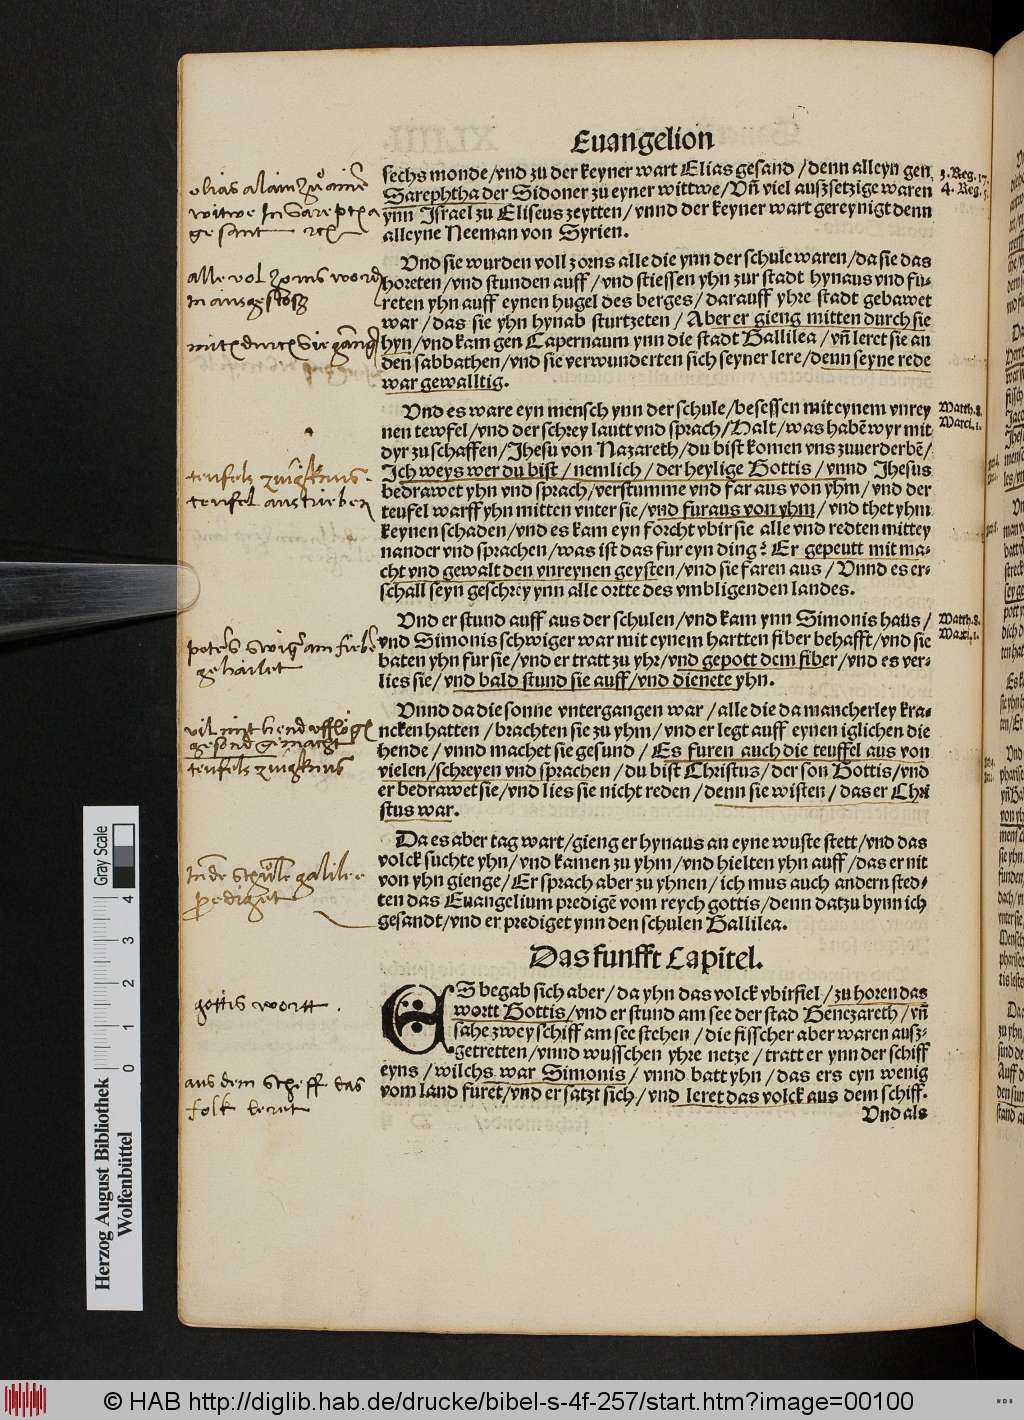 Euangelion
sechs monde/vnd zu der keyner wart Elias gesand/denn alleyn gen
Sarephtha der Sidoner zu eyner wittwe/Vñ viel auszsetzige waren
ynn Israel zu Eliseus zeytten/vnnd der keyner wart gereynigt denn
alleyne Neeman von Syrien.
3. Reg. 17.
4. Reg. 5.
elias alain zů ainer
witwe In Sareptha
gesant
Vnd sie wurden voll zorns alle die ynn der schule waren/da sie das
horeten/vnd stunden auff/vnd stiessen yhn zur stadt hynaus vnd fu-
reten yhn auff eynen hugel des berges/darauff yhre stadt gebawet
war/das sie yhn hynab sturtzeten/Aber er gieng mitten durch sie
hyn/vnd kam gen Capernaum ynn die stadt Gallilea/vñ leret sie an
den sabbathen/vnd sie verwunderten sich seyner lere/denn seyne rede
war gewalltig.
alle vol zorns word
In ausgestosz
mitten durch sie gang
Vnd es ware eyn mensch ynn der schule/besessen mit eynem vnrey
nen tewfel/vnd der schrey lautt vnd sprach/Halt/was habẽ wyr mit
dyr zu schaffen/Jhesu von Nazareth/du bist komen vns zuuerderbẽ/
Ich weys wer du bist/nemlich/der heylige Gottis/vnnd Jhesus
bedrawet yhn vnd sprach/verstumme vnd far aus von yhm/vnd der
teufel warff yhn mitten vnter sie/vnd fur aus von yhm/vnd thet yhm
keynen schaden/vnd es kam eyn forcht vbir sie alle vnd redten mittey
nander vnd sprachen/was ist das fur eyn ding? Er gepeutt mit ma-
cht vnd gewalt den vnreynen geysten/vnd sie faren aus/Vnnd es er-
schall seyn geschrey ynn alle ortte des vmbligenden landes.
Matth. 8.
Marci. i.
teufels zeugknus
teufel austrieben
Vnd er stund auff aus der schulen/vnd kam ynn Simonis haus/
vnd Simonis schwiger war mit eynem hartten fiber behafft/vnd sie
baten yhn fur sie/vnd er tratt zu yhr/vnd gepott dem fiber/vnd es ver-
lies sie/vnd bald stund sie auff/vnd dienete yhn.
Matth. 8.
Marci. i.
peters swiger am fieber
gehailet
Vnnd da die sonne vntergangen war/alle die da mancherley kra-
ncken hatten/brachten sie zu yhm/vnd er legt auff eynen iglichen die
hende/vnnd machet sie gesund/Es furen auch die teuffel aus von
vielen/schreyen vnd sprachen/du bist Christus/der son Gottis/vnd
er bedrawet sie/vnd lies sie nicht reden/denn sie wisten/das er Chri
stus war.
vil mit hend
gesond gemacht
teufels zeugknus
Da es aber tag wart/gieng er hynaus an eyne wuste stett/vnd das
volck suchte yhn/vnd kamen zu yhm/vnd hielten yhn auff/das er nit
von yhn gienge/Er sprach aber zu yhnen/ich mus auch andern sted-
ten das Euangelium predigẽ vom reych gottis/denn datzu bynn ich
gesandt/vnd er prediget ynn den schulen Gallilea.
In de schuel galilee
prediget
Das funfft Capitel.
ES begab sich aber/da yhn das volck vbirfiel/zu horen das
wortt Gottis/vnd er stund am see der stad Genezareth/vñ
sahe zwey schiff am see stehen/die fisscher aber waren ausz-
getretten/vnnd wusschen yhre netze/tratt er ynn der schiff
eyns/wilchs war Simonis/vnnd batt yhn/das ers eyn wenig
vom land furet/vnd er satzt sich/vnd leret das volck aus dem schiff.
Vnd als
gottis wortt.
aus dem scheff das
folk leret
Herzog August Bibliothek
Wolfenbüttel
0 1 2 3 4
Gray Scale
© HAB http://diglib.hab.de/drucke/bibel-s-4f-257/start.htm?image=00100